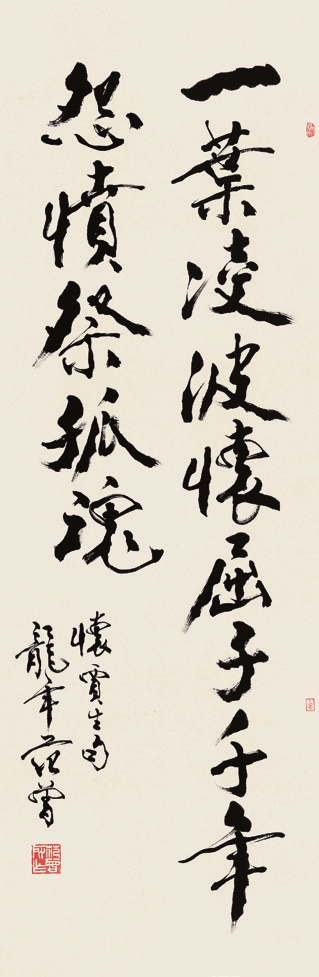 一葉淩波懷屈子千年
怨憤祭孤魂
懷賈生句
龍年范曾